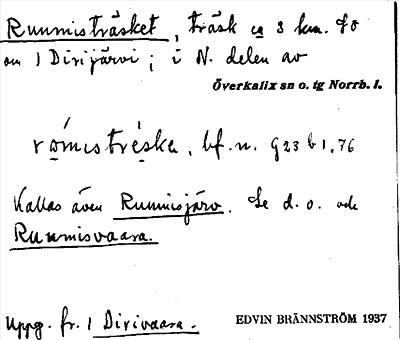 Rummisträsket, träsk ca 3 km. SO
om 1 Dirijärvi; i N. delen av
Överkalix sn o. tg Norrb. l.
rómıstrèska, bf. n. G23 b 1, 76
Kallas även Rummisjärv. Se d. o. och
Rummisvaara.
Uppg. fr. 1 Dirivaara.
EDVIN BRÄNNSTRÖM 1937